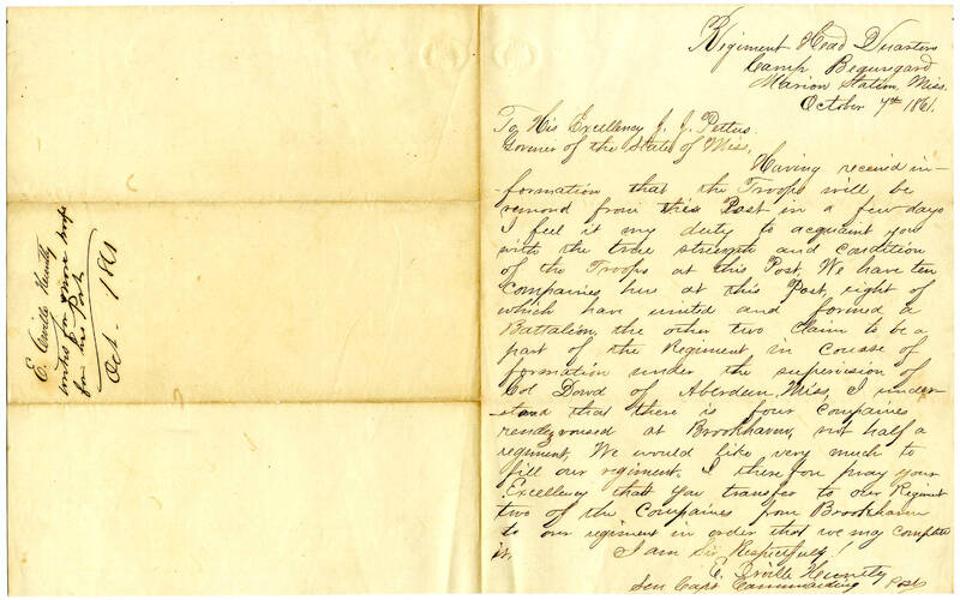 Regiment Head Quarters
Camp Beguregard
Marion Station, Miss.
October 7th 1861.
To His Excellency J. J. Pettus
Govner of the State of Miss,
Having receied in-
-formation that the Troops will be
remond from this Post in a few days
I feel it my duty to acquaint you
with the true strength and condition
of the Troops at this Post, We have ten
Companies here at this Post, eight of
which have united and formed a
Battalion, the other two Claim to be a
part of the Regiment in Course of
formation under the supervision of
Col Dowd of Aberdeen, Miss, I under-
-stand that there is four Compaines
rendezvoused at Brookhaven, not half a
regiment, We would like very much to
fill our regiment. I there fore pray your
Excellency that you transfer to our Regiment
two of the Compaines from Brookhaven
to our regiment in order that we may complete
it. I am Sir Respectfully!
E. Orville Huntly
Sen Capt Commanding Post
E. Orville Huntly
writes for more troops
for his Post
Oct. 1861